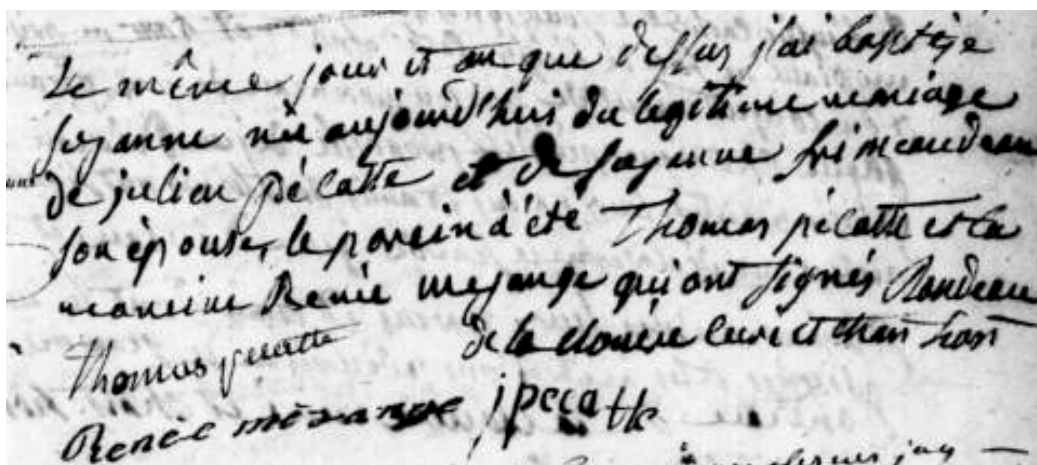 Le même jour et an que dessus j'ai baptisé
sozanne née aujourd'hui du legitime mariage
de julien Pélatte et de sozanne frimaudeau
son épouse, le parein à été Thomas pélatte et la
mareine Renée mesange qui ont signés Rondeau
de la curé et
Thomas
Renée mésange